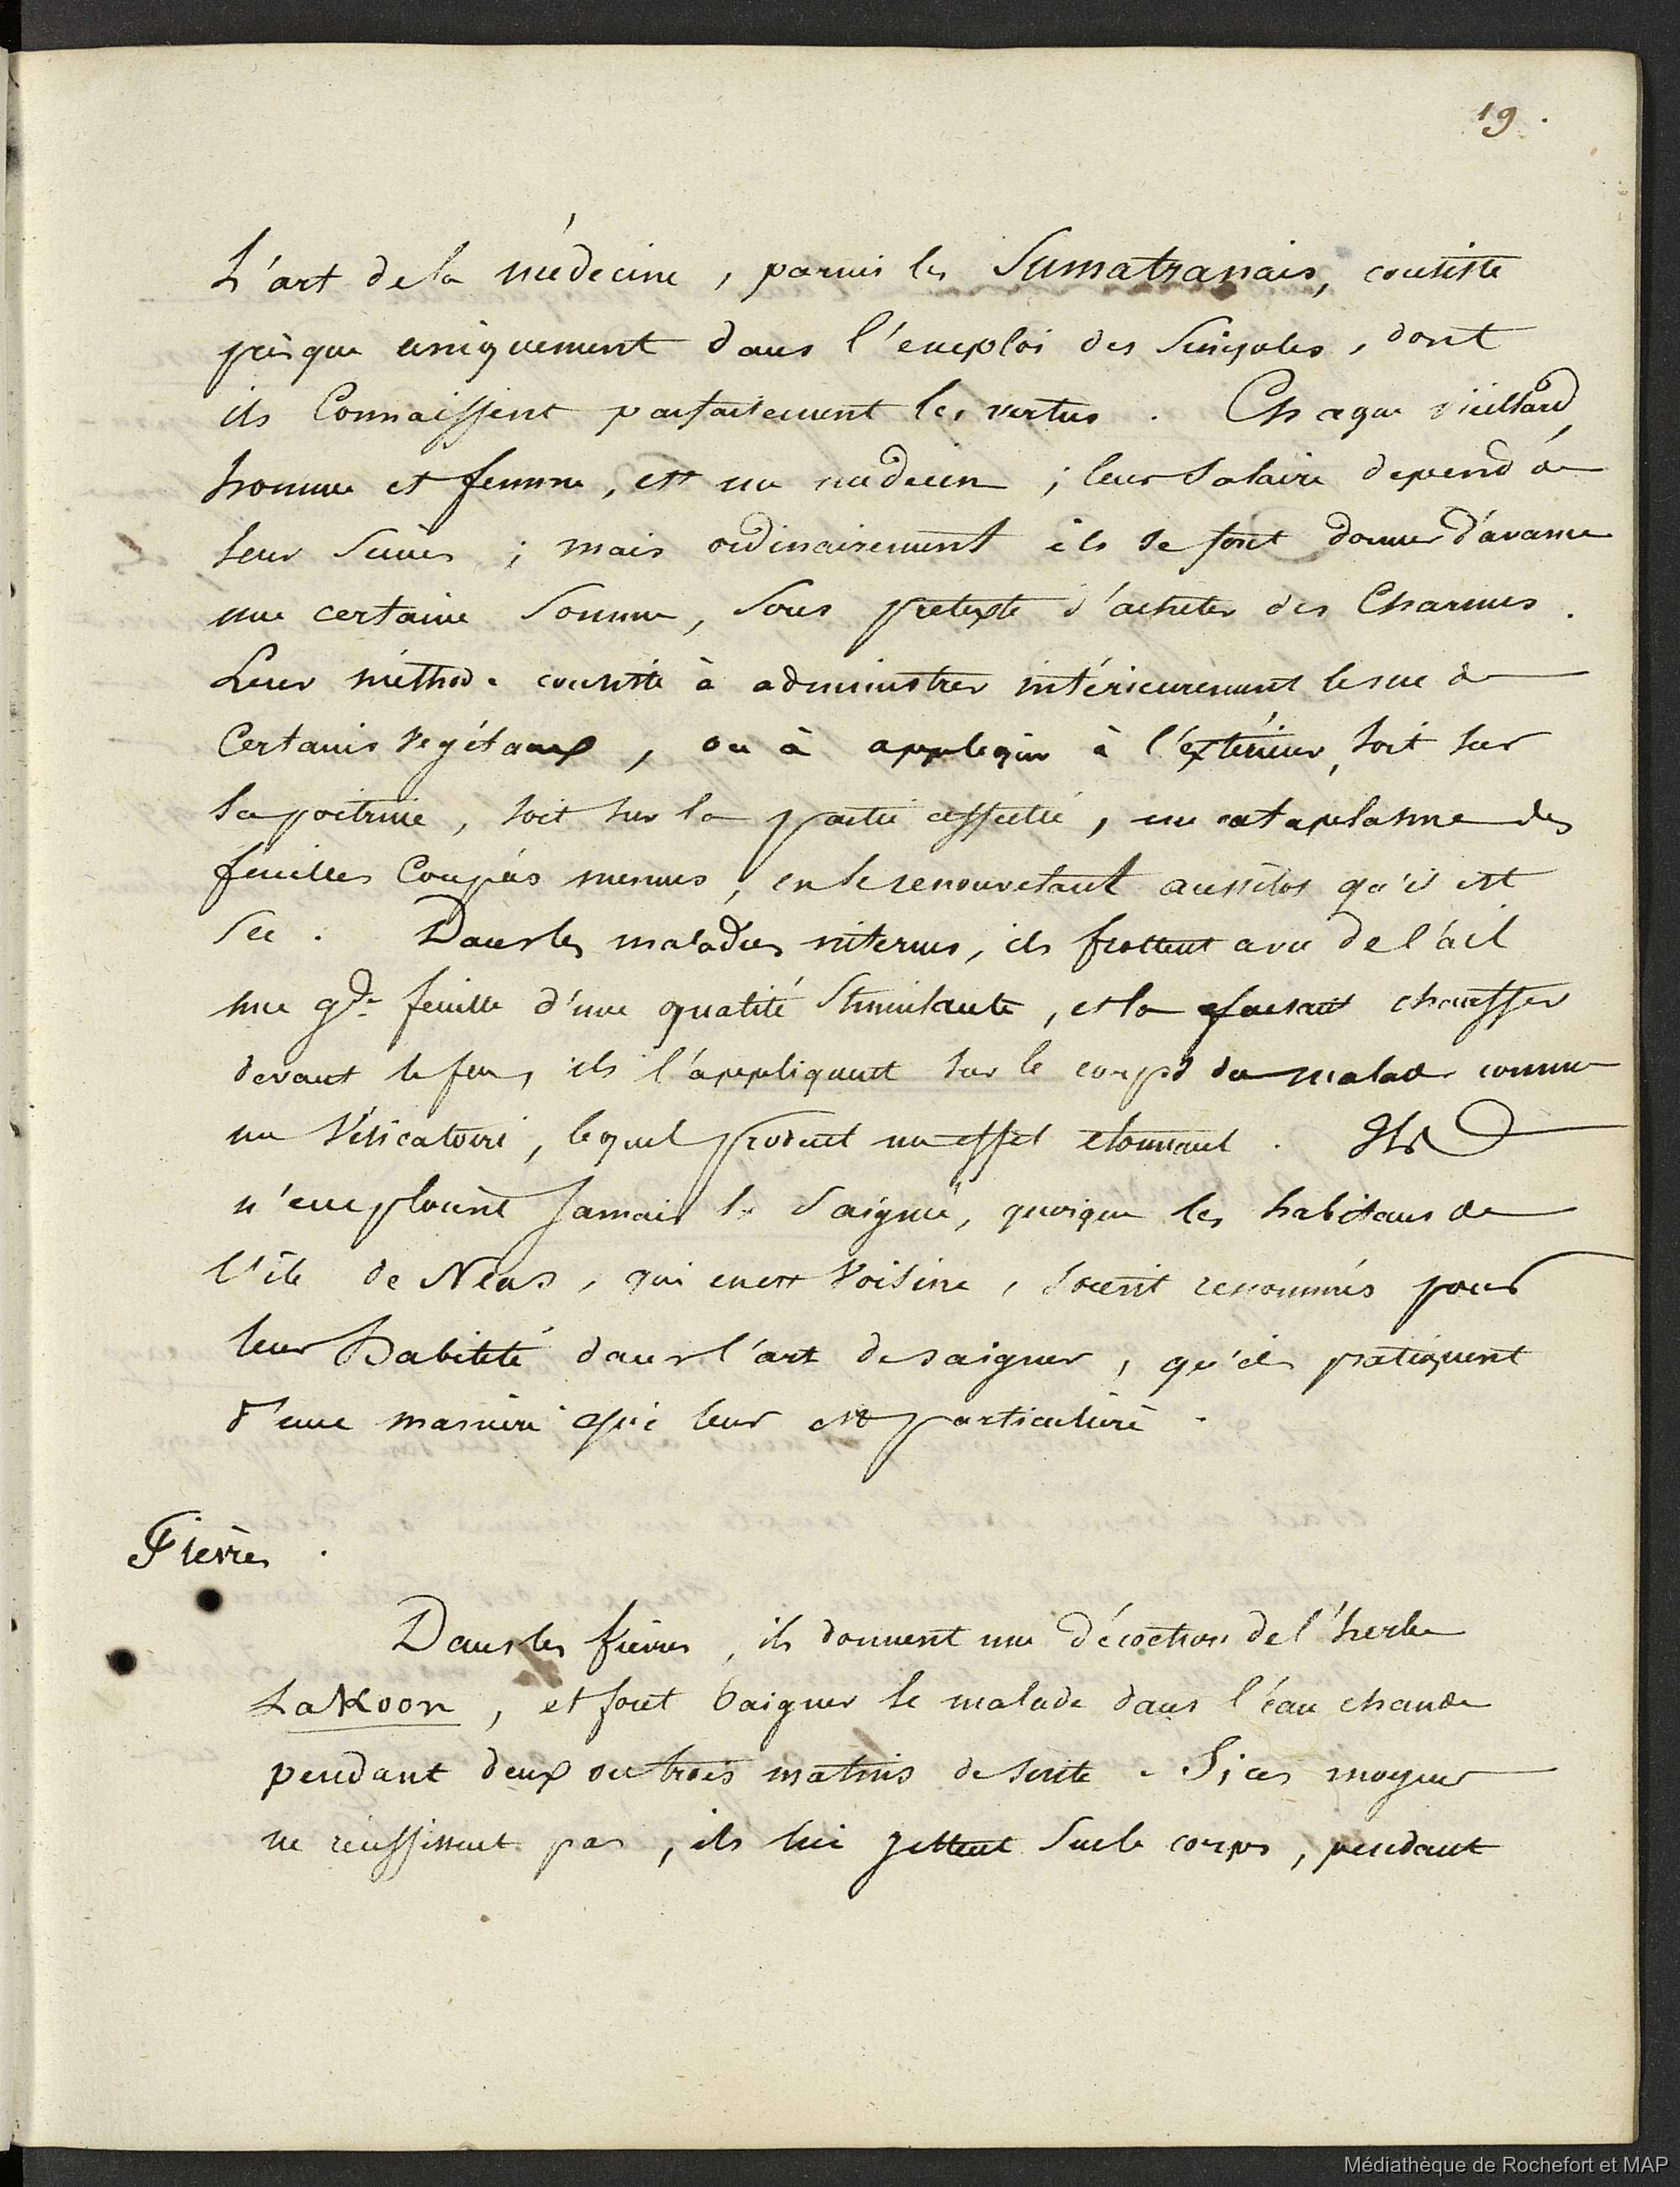 19.
L'art de la médecine, parmi les Sumatranais, consiste
presque uniquement dans l'emploi des Simples, dont
ils Connaissent parfaitement les vertus. Chaque vieillard,
homme et femme, est un médecin ; leur Salaire depend de
leur Succès ; mais ordinairement ils se font donner d'avance
une certaine Somme, Sous prétexte d'acheter des Charmes.
Leur méthode consiste à administrer intérieurement le suc de
Certains Végétaux, ou à appliquer à l'extérieur, soit sur
la poitrine, soit sur la partie affectée, un cataplasme des
feuilles Coupées menues, en le renouvelant aussitôt qu'il est
Sec. Dans les maladies internes, ils frottent avec de l'ail
une gde feuille d'une qualité Stimulante, et la faisant chauffer
devant le feu, ils l'appliquent sur le corps du malade comme
un Vésicatoire, lequel produit un effet étonnant. Ils
n'emploient Jamais la Saignée, quoique les habitans de
l'île de Neas, qui en est Voisine, soient renommés pour
leur habileté dans l'art de saigner, qu'ils pratiquent
d'une manière qui leur est particulière.
Fièvres.
Dans les fièvres, ils donnent une décoction de l'herbe
Lakoon, et font baigner le malade dans l'eau chaude
pendant deux ou trois matins de suite. Si ces moyens
ne réussissent pas, ils lui jettent Sur le corps, pendant
Médiathèque de Rochefort et MAP